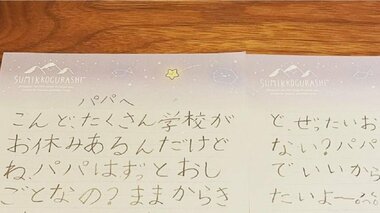 SUMIKKOGURASHI
パパへ
こんど、たくさん学校が
お休みあるんだけど
ね、パパはずっとおし
ごとなの？ままからき
SUMIKKOGURASHI
ど、ぜったいお
ない？パパ
でいいから
たいよー